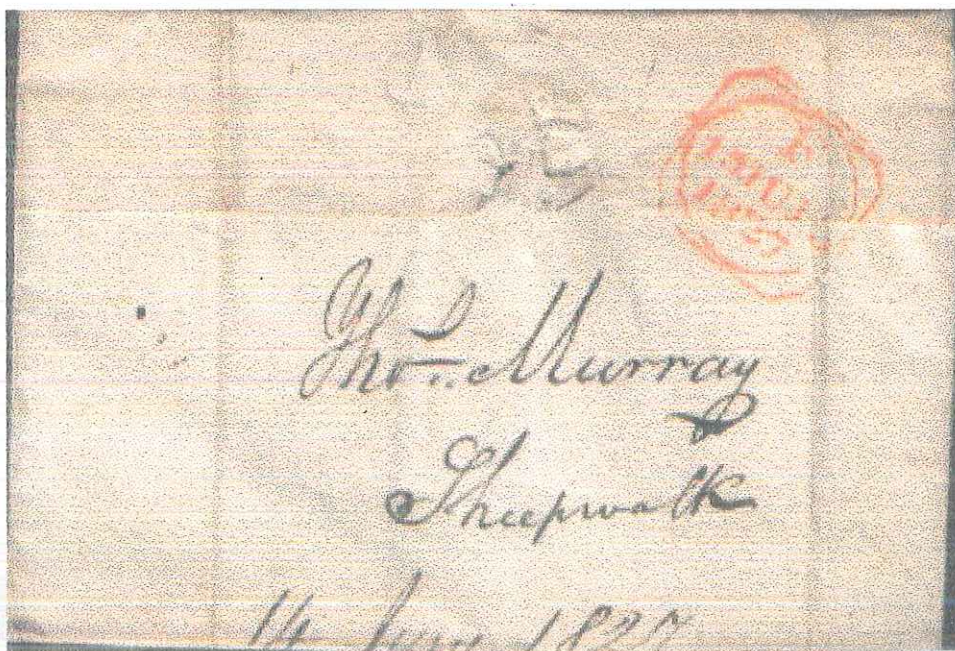 E
1827
Thos. Murray
Sheepwalk
14 June 1827